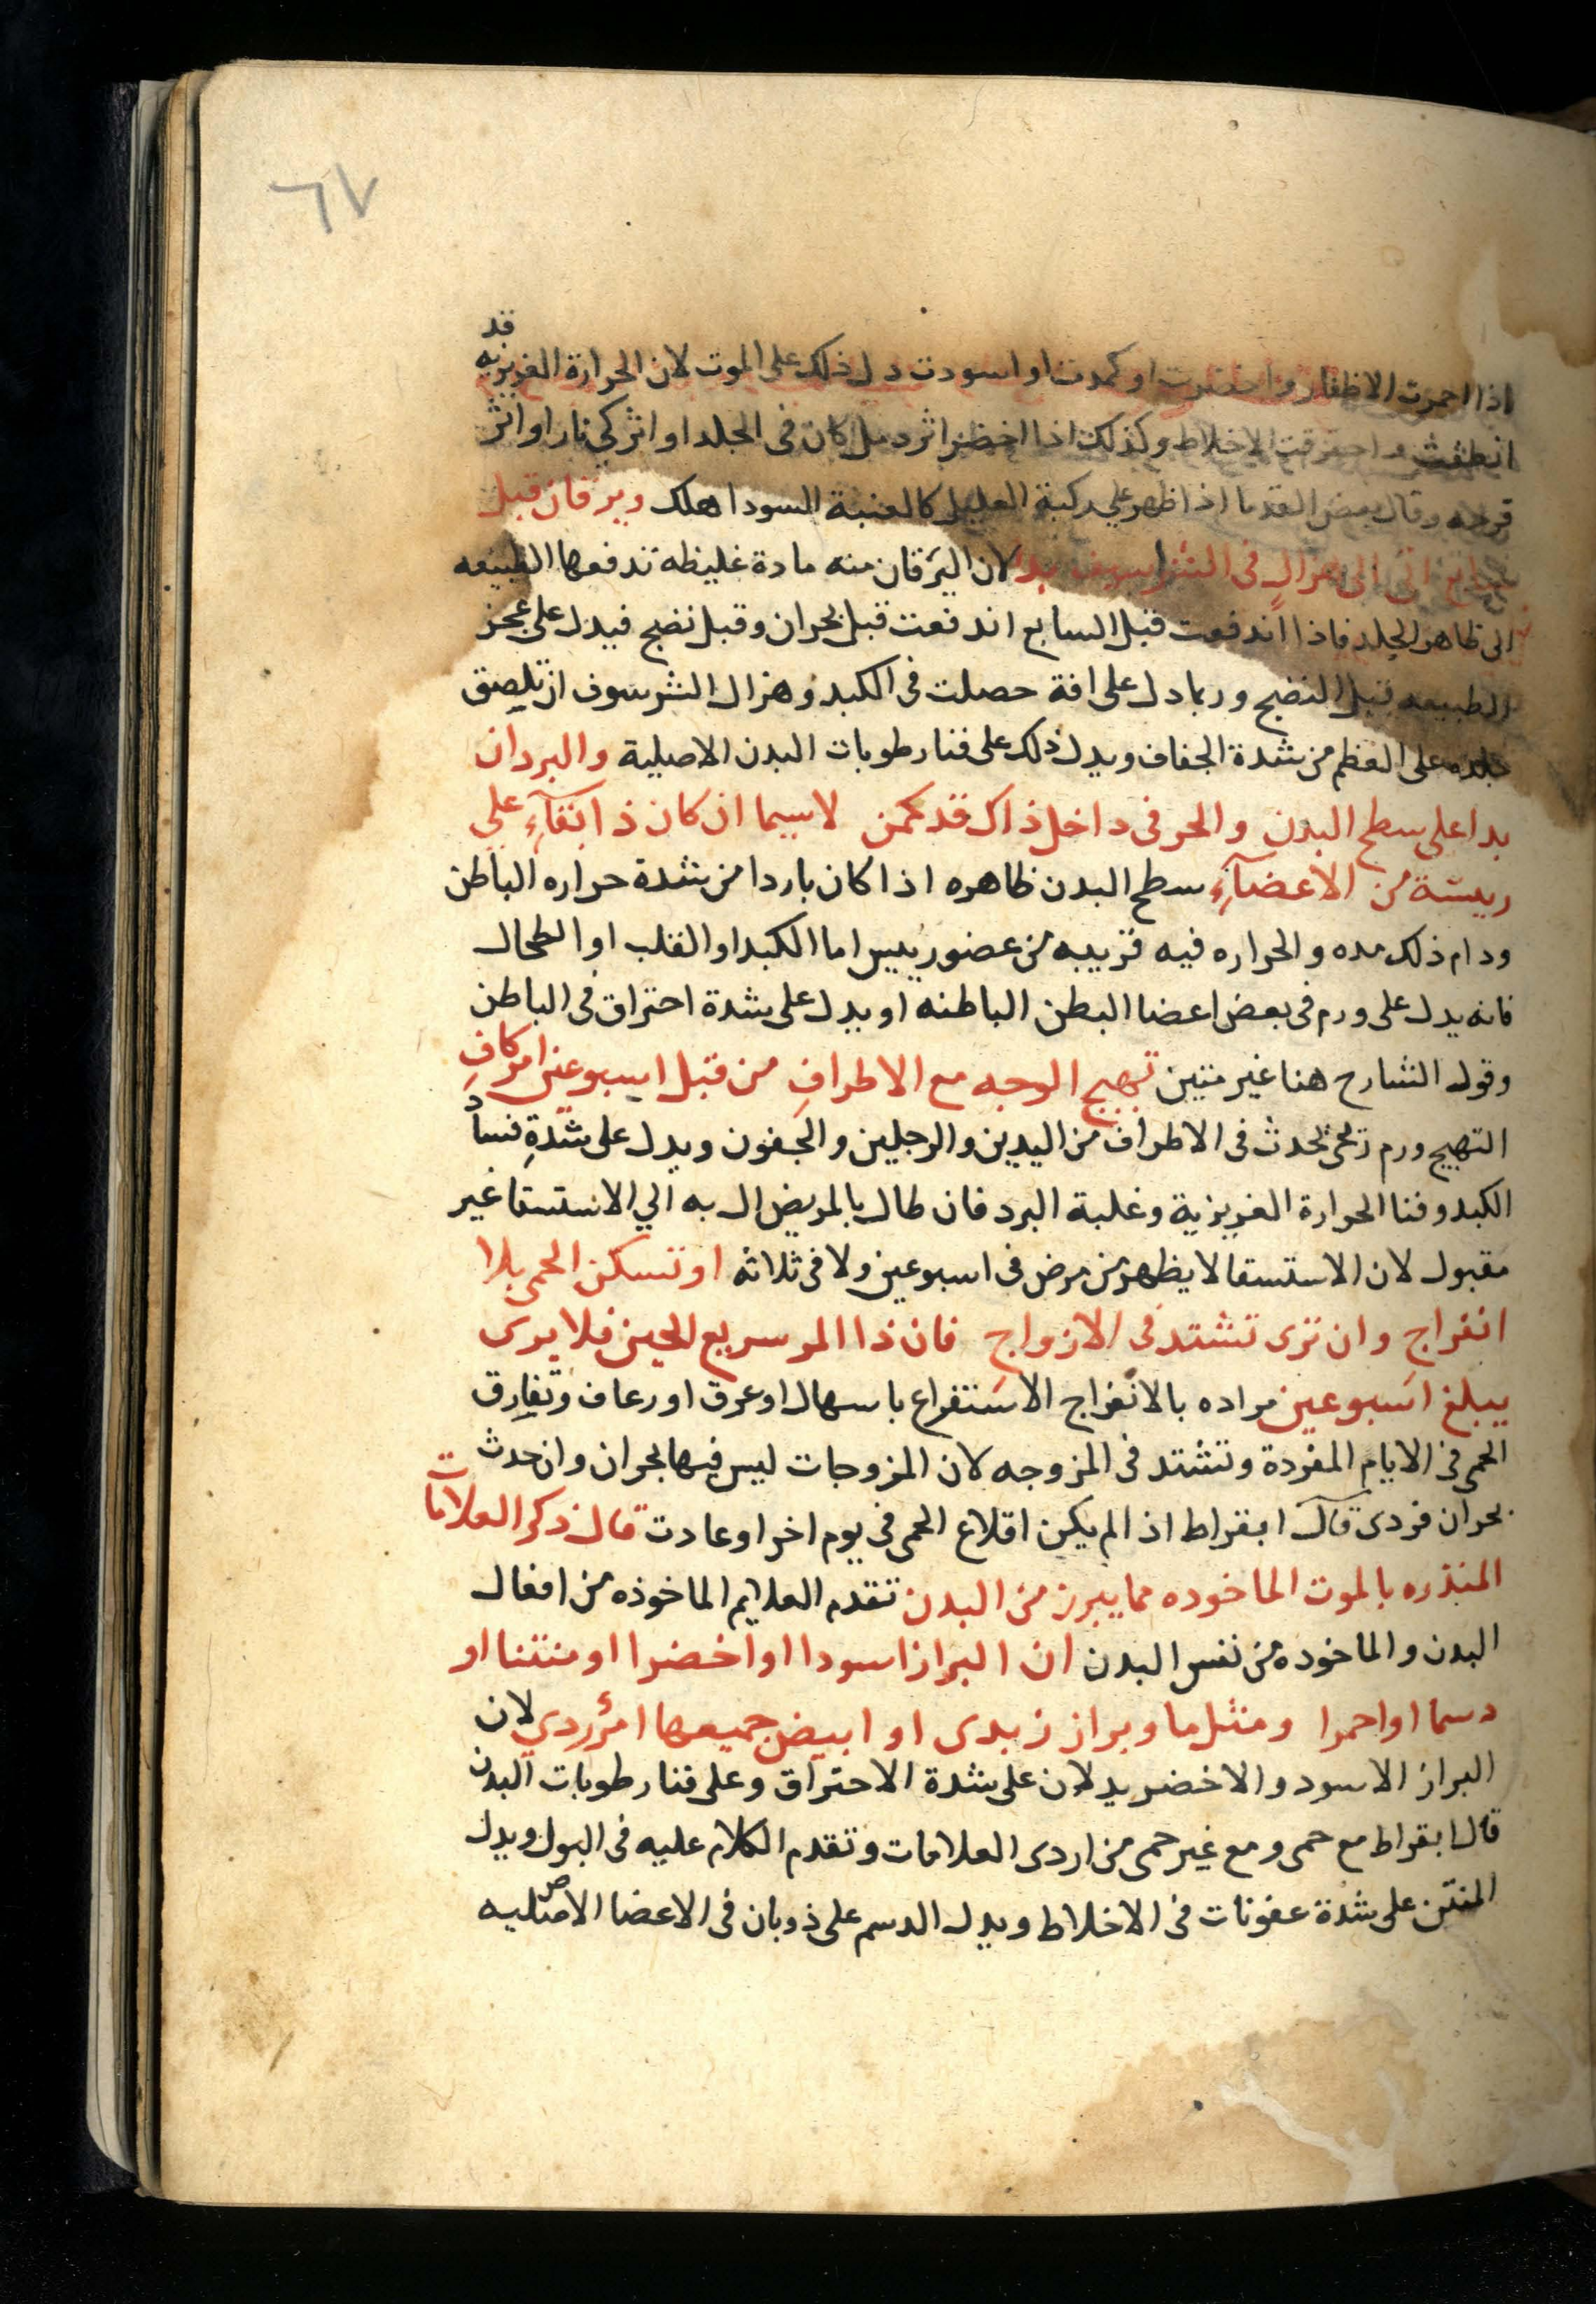 ٦٧
قد
اذا احمرت الاظفار واخضرت او كمدت او اسودت دل ذلك على الموت لان الحرارة الغريزيه
انطفت واحترقت الاخلاط وكذلك اذا اخضر اثر دمل كان فى الجلد او اثر كى نار او اثر
قرحه وقال بعض القدما اذا ظهر على ركبة العليل كالعنبة السودا هلك ويرقان قبل
اتى الى هزال فى الشراسيف بدا لان اليرقان منه مادة غليظه تدفعها الطبيعه
الى ظاهر الجلد فاذا اندفعت قبل السابع اندفعت قبل بحران وقبل نضج فيدل على عجز
الطبيعه قبل النضج وربما دل على افة حصلت فى الكبد وهزال الشرسوف ان تلصق
جلده على العظم من شدة الجفاف ويدل ذلك على فنا رطوبات البدن الاصلية والبرد ان
بدا على سطح البدن والحر فى داخل ذاك قد كمن لاسيما ان كان ذا اتكآءِ على
ريسة من الاعضآءِ سطح البدن ظاهره اذا كان باردا من شدة حراره الباطن
ودام ذلك مده والحراره فيه قريبه من عضو رييس اما الكبد او القلب او الطحال
فانه يدل على ورم فى بعض اعضا البطن الباطنه او يدل على شدة احتراق فى الباطن
وقول الشارح هنا غير متين تهبج الوجه مع الاطرافِ من قبل اسبوعين امر كافِ
التهبج ورم رخى يحدث فى الاطراف من اليدين والرجلين والجفون ويدل على شدةِ فساد
الكبد وفنا الحرارة الغريزية وغلبة البرد فان طال بالمريض ال به الي الاستسقا غير
مقبول لان الاستسقا لا يظهر من مرض فى اسبوعين ولا فى ثلاثه او تسكن الحمى بلا
انفراجِ وان ترى تشتد فى الازواجِ فان ذا المر سريع الحين فلا يرى
يبلغ اسبوعين مراده بالانفراج الاستفراغ باسهال او عرق او رعاف وتفارق
الحمى فى الايام المفردة وتشتد فى المزوجه لان المزوجات ليس فيها بحران وان حدث
بحران فردى قال ابقراط اذا لم يكن اقلاع الحمى فى يوم اخر او عادت قال ذكر العلامات
المنذره بالموت الماخوده مما يبرز من البدن تقدم العلايم الماخوذه من افعال
البدن والماخوده من نفس البدن ان البراز اسودا او اخضرا او منتنا او
دسما او احمرا ومثل ما وبراز زبدى او ابيض جميعها امرٌ ردي لان
البراز الاسود والاخضر يدلان على شدة الاحتراق وعلى فنا رطوبات البدن
قال ابقراط مع حمى ومع غير حمى من اردى العلامات وتقدم الكلام عليه فى البول ويدل
المنتن على شدة عفونات فى الاخلاط ويدل الدسم على ذوبان فى الاعضا الاصليه